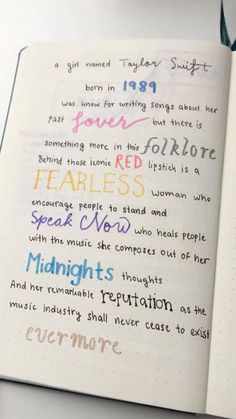 a girl named Taylor Swift
born in 1989
was know for writing songs about her
past Lover but there is
something more in this folklore
Behind those iconic RED lipstick is a
FEARLESS woman who
encourage people to stand and
Speak Now who heals people
with the music she composes out of her
Midnights thoughts
And her remarkable reputation as the
music industry shall never cease to exist
evermore